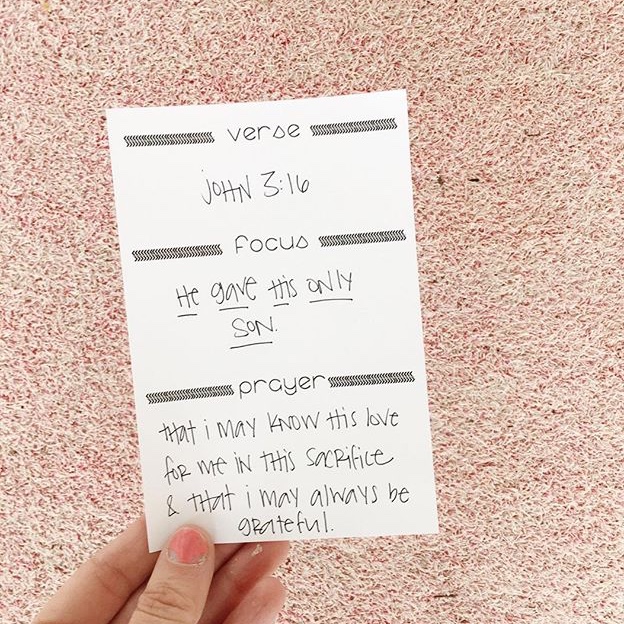 verse
JOHN 3:16
focus
He gave His ONLY
SON.
prayer
that i may KNOW His love
for me in this sacrifice
& that i may always be
grateful.